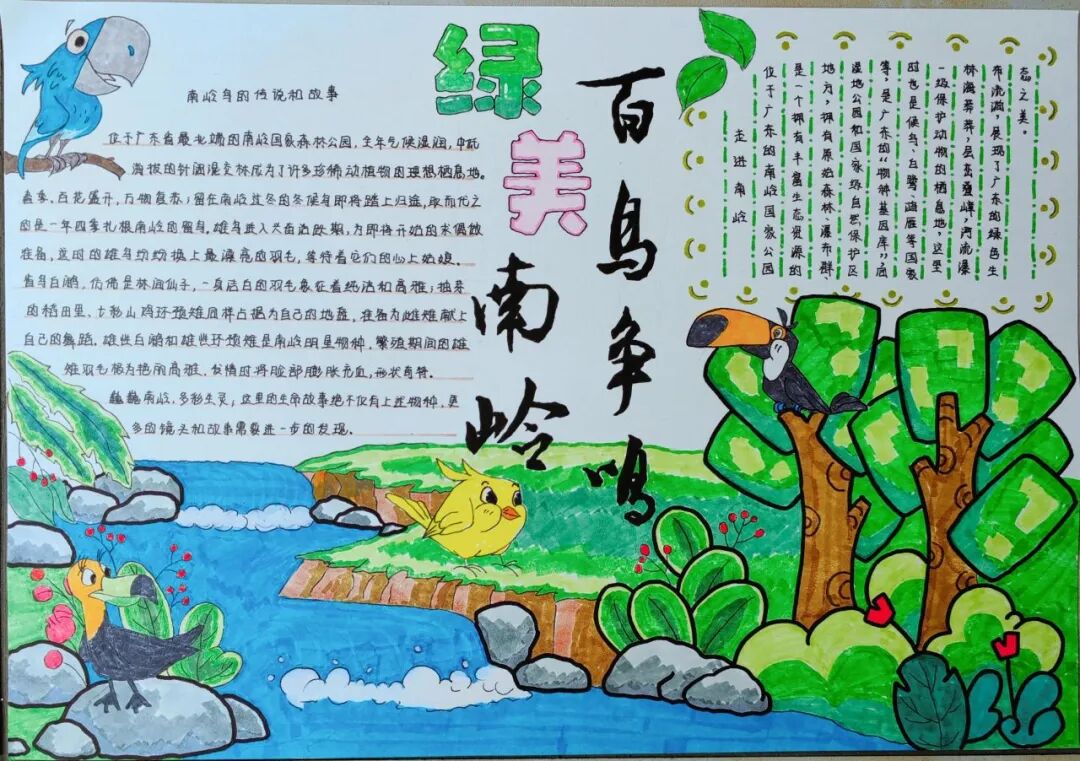 绿美南岭
百鸟争鸣
南岭鸟的传说和故事
位于广东省最北端的南岭国家森林公园,全年气候湿润,中低
海拔的针阔混交林成为了许多珍稀动植物的理想栖息地。
春季,百花盛开,万物复苏;留在南岭过冬的冬候鸟即将踏上归途,取而代之
的是一年四季扎根南岭的留鸟。雄鸟进入活跃期,为即将开始的求偶做
准备,这时的雄鸟纷纷换上最漂亮的羽毛,等待着它们的心上姑娘。
省鸟白鹇,仿佛是林间仙子,一身洁白的羽毛象征着纯洁和高雅;
的稻田里,七彩山鸡环颈雉同样占据为自己的地盘,准备为雌雉献上
自己的舞蹈。雄性白鹇和雄性环颈雉是南岭明星物种,繁殖期间的雄
雉羽毛格为艳丽高雅,发情时将脸部膨胀充血,形状奇特。
巍巍南岭,多彩生灵,这里的生命故事绝不仅有上述物种,更
多的镜头和故事需要进一步的发现。
走进南岭
位于广东的南岭国家公园
是一个拥有丰富生态资源的
地方,拥有原始森林、瀑布群、
湿地公园和国家级自然保护区
等,是广东的“物种基因库”。
时也是候鸟、白鹭、鸿雁等国家
一级保护动物的栖息地。这里
林海莽莽,层峦叠嶂,河流瀑
布流淌,展现了广东的绿色生
态之美。